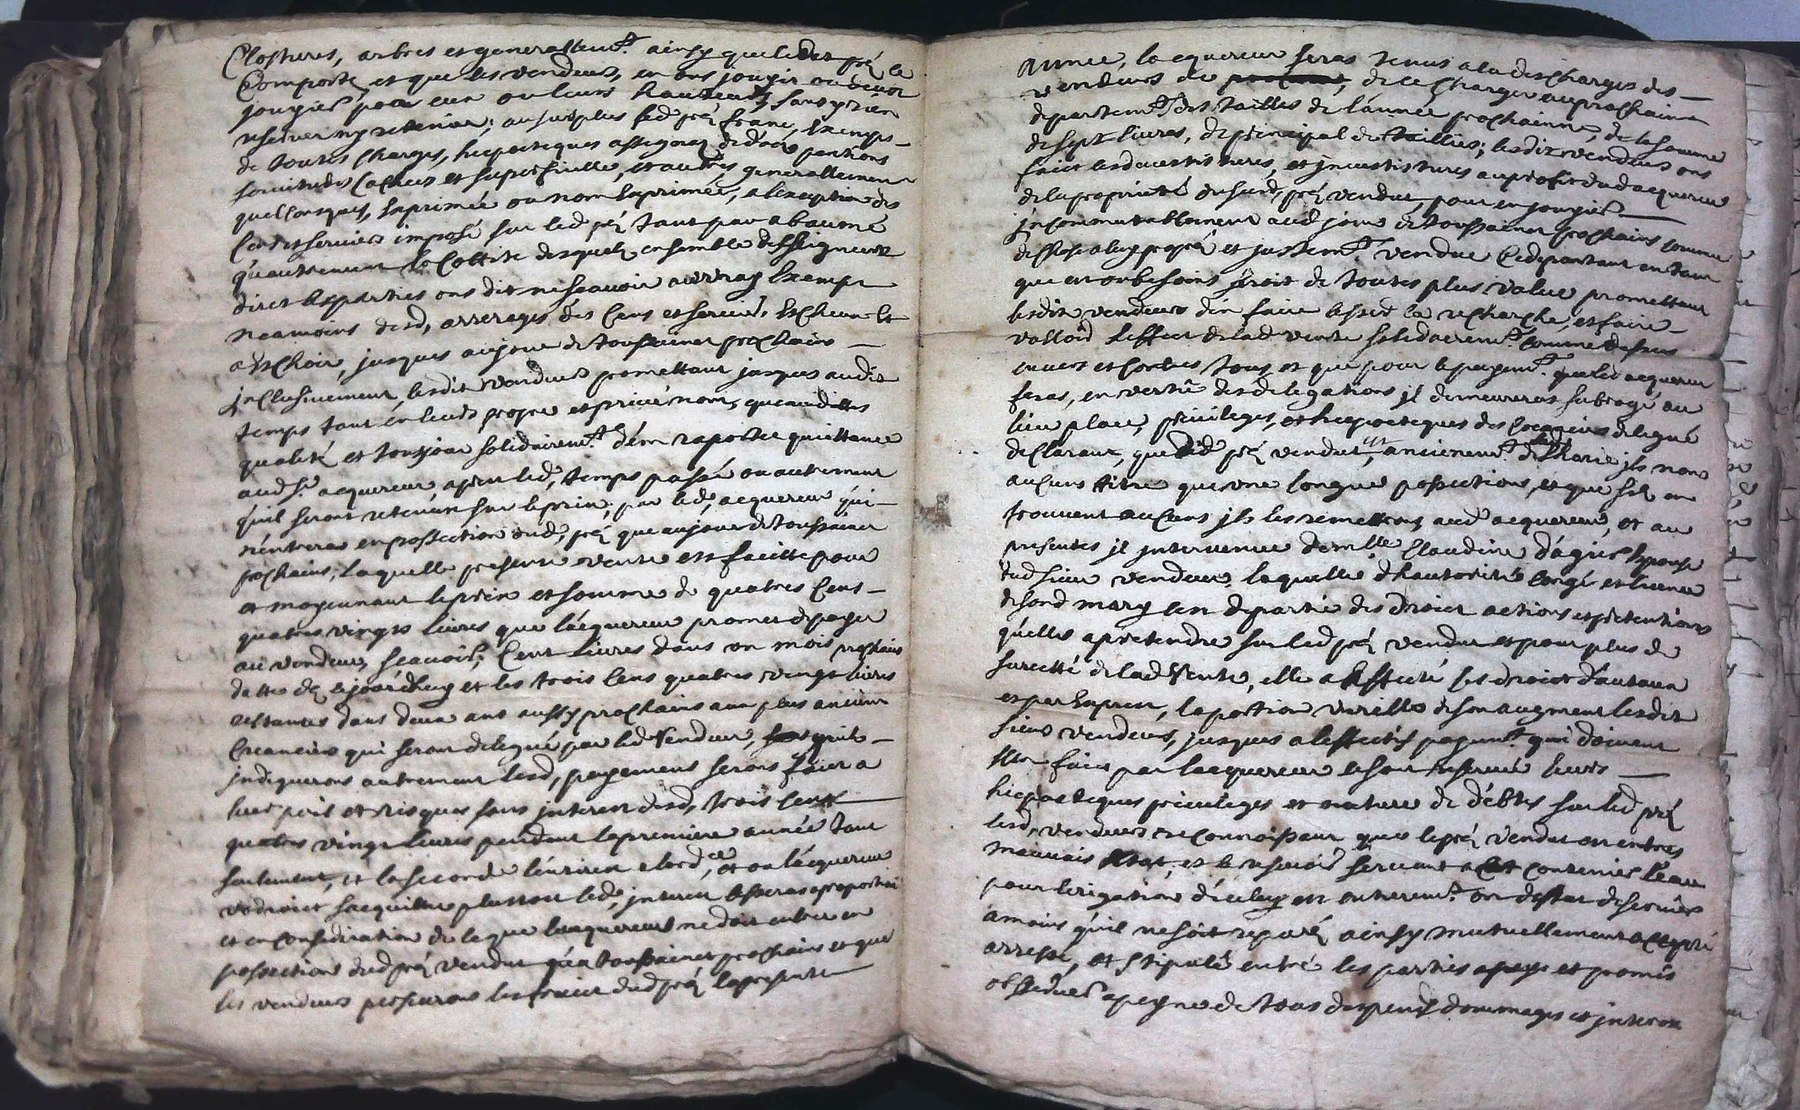 Clostures, arbres et generallem.t ainsy que ledit pré le
Comporte et que les vendeurs, en ons jougir ou deuor
jougir pour eux ou leurs hauteurs sans y rien
reserver ny retenir; au surplus led. pré franc, Exemps
de touttes Charges, hipoteques assignaz dédouis pentions
seruitudes Cachees et superficielle, et autres generallement
quelConques, Exprimée ou non Exprimée, a lexception des
Cens et seruics imposé sur led pré tant par abaumé
quautrement La Cottité desquels ensemble du Seigneur
direct les parties ons dit ne scauoir au vray Exempt
neamoins desd, arrerages des Cens et seruis, Escheu Et
a Eschoir, jusques au jour de toussaint prochains
jnclusiuement, lesdit vendeurs promettant jusques audit
temps tant en leurs propre et priué nom, que audittes
qualité et tousjour solidairem.t d'en raporter quittance
aud s.r acquereur apres led, temps passé ou autrement
quil seront retenus sur le prix, par led, acquereur qui
n'entrera en possection dud, pré que au jour de toussaint
prochains; Laquelle presente vente est faitte pour
et moyennant le prix et somme de quatres Cens
quatres vingts liures que lacquereur promet de payer
au vendeurs scauoir, Cent liures dans un mois prochains
datté de cejourdhuy et les trois Cens quatres vingt liures
restantes dans deux ans aussy prochains aux plus anciens
Creanciers qui seront delegué par led Vendeur, quil
jndiquerons autrement lesd, payements serons faict a
leur peril et risques sans jnterest desd, trois Cent
quatres vingt liures pendant la premiere année tant
seulement, et la seconde et ou lacquereur
voudroict sacquitter plustost led, jnterest Cesseras a proportion
et en consideration de ce que lacquereur ne doit entrer en
possections dud pré vendut qua toussainct prochains et que
les vendeurs percurons les fruict dud pré la presente
Année, lacquereur seras tenus a la descharges des
vendeurs de de se Charger au prochain
departem.t des tailles de lannée prochainne de la somme
de sept liures, de principal de tailles; lesdit vendeurs ons
faict les deuestitures, et jnuestitures au profit dud acquereur
de la propriété dususd, pré vendut, pour en jougir
jncommutablement aud jour de toussainct prochains comme
de chose a luy propre et justem.t vendue Cedepartant en tant
que en besoins seroit de toutes plus value promettant
lesdit vendeurs d'en faire Cesser la recharche, et faire
valloir leffect de lad vente solidairem.t Comme dessus
enuers et Contres tous et que pour le payem.t que led acquereur
feras, en vertu desdelegations jl demeureras subrogé au
lieu place, priuileges, et hipoteques des Creanciers delegué
declarant, que led pré vendut, anciennem.t de Marie jls nons
aucuns titre que une longue possections, et que sils en
trouuent aucuns jls les remettrons aud acquereur, et au
presentes jl jnteruenue demlle Claudine dagier Espouse
dud sieur vendeur laquelle d'hautorité Congé et licence
de sond mary sen departie des droict actions et pretentions
quelle a pretendre sur led pré vendut et pour plus de
suretté de lad Vente, elle affecté ses droict d'autant
et par Exprest, la portion virelle de son augment lesdit
sieur vendeurs, jusques a leffectif payem.t qui doiuent
Estre faict par lacquereur se son reserué leurs
hipoteques priuileges et nature de débtes sur led pré
lesd, vendeurs reconnoissant que le pré vendut en entres
mauuais Etat, et le reseruoir seruant a Contenir l'eau
pour lirigation d'iceluy est entierem.t hor destat de seruice
a moins quil ne soit reparé, ainsy mutuellement accepté
arresté, et stipulé entre les parties a payé et promis
obseruer a peyne de tous despens dommages et jnterest